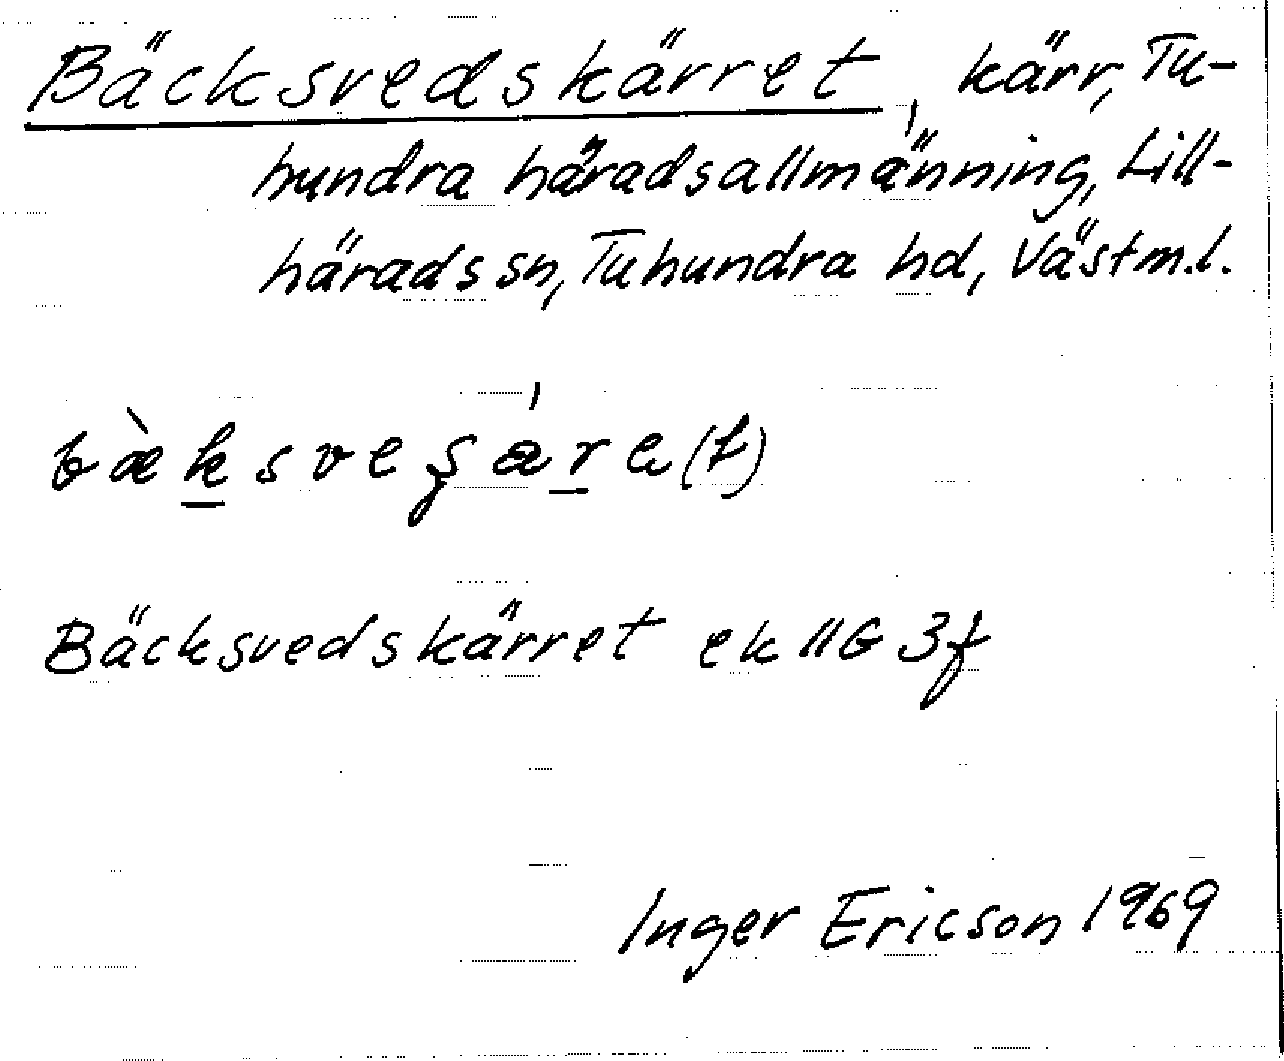 Bäcksvedskärret, kärr, Tu-
hundra häradsallmänning, Lill-
härads sn, Tuhundra hd, Västm.l.
Bäcksvedskärret ek 11G 3f
Inger Ericson 1969